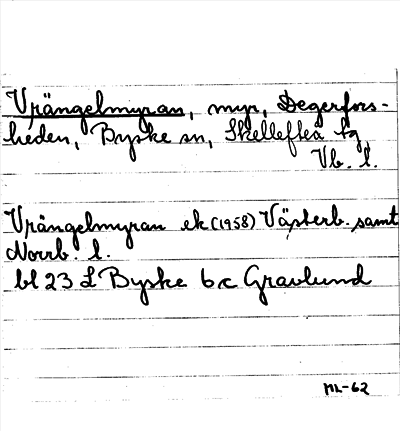 Vrängelmyran, myr, Degerfors-
heden, Byske sn, Skellefteå tg
Vb. l.
Vrängelmyran ek (1958) Västerb. samt
Norrb. l.
bl 23 L Byske 6c Gravlund
ML-62